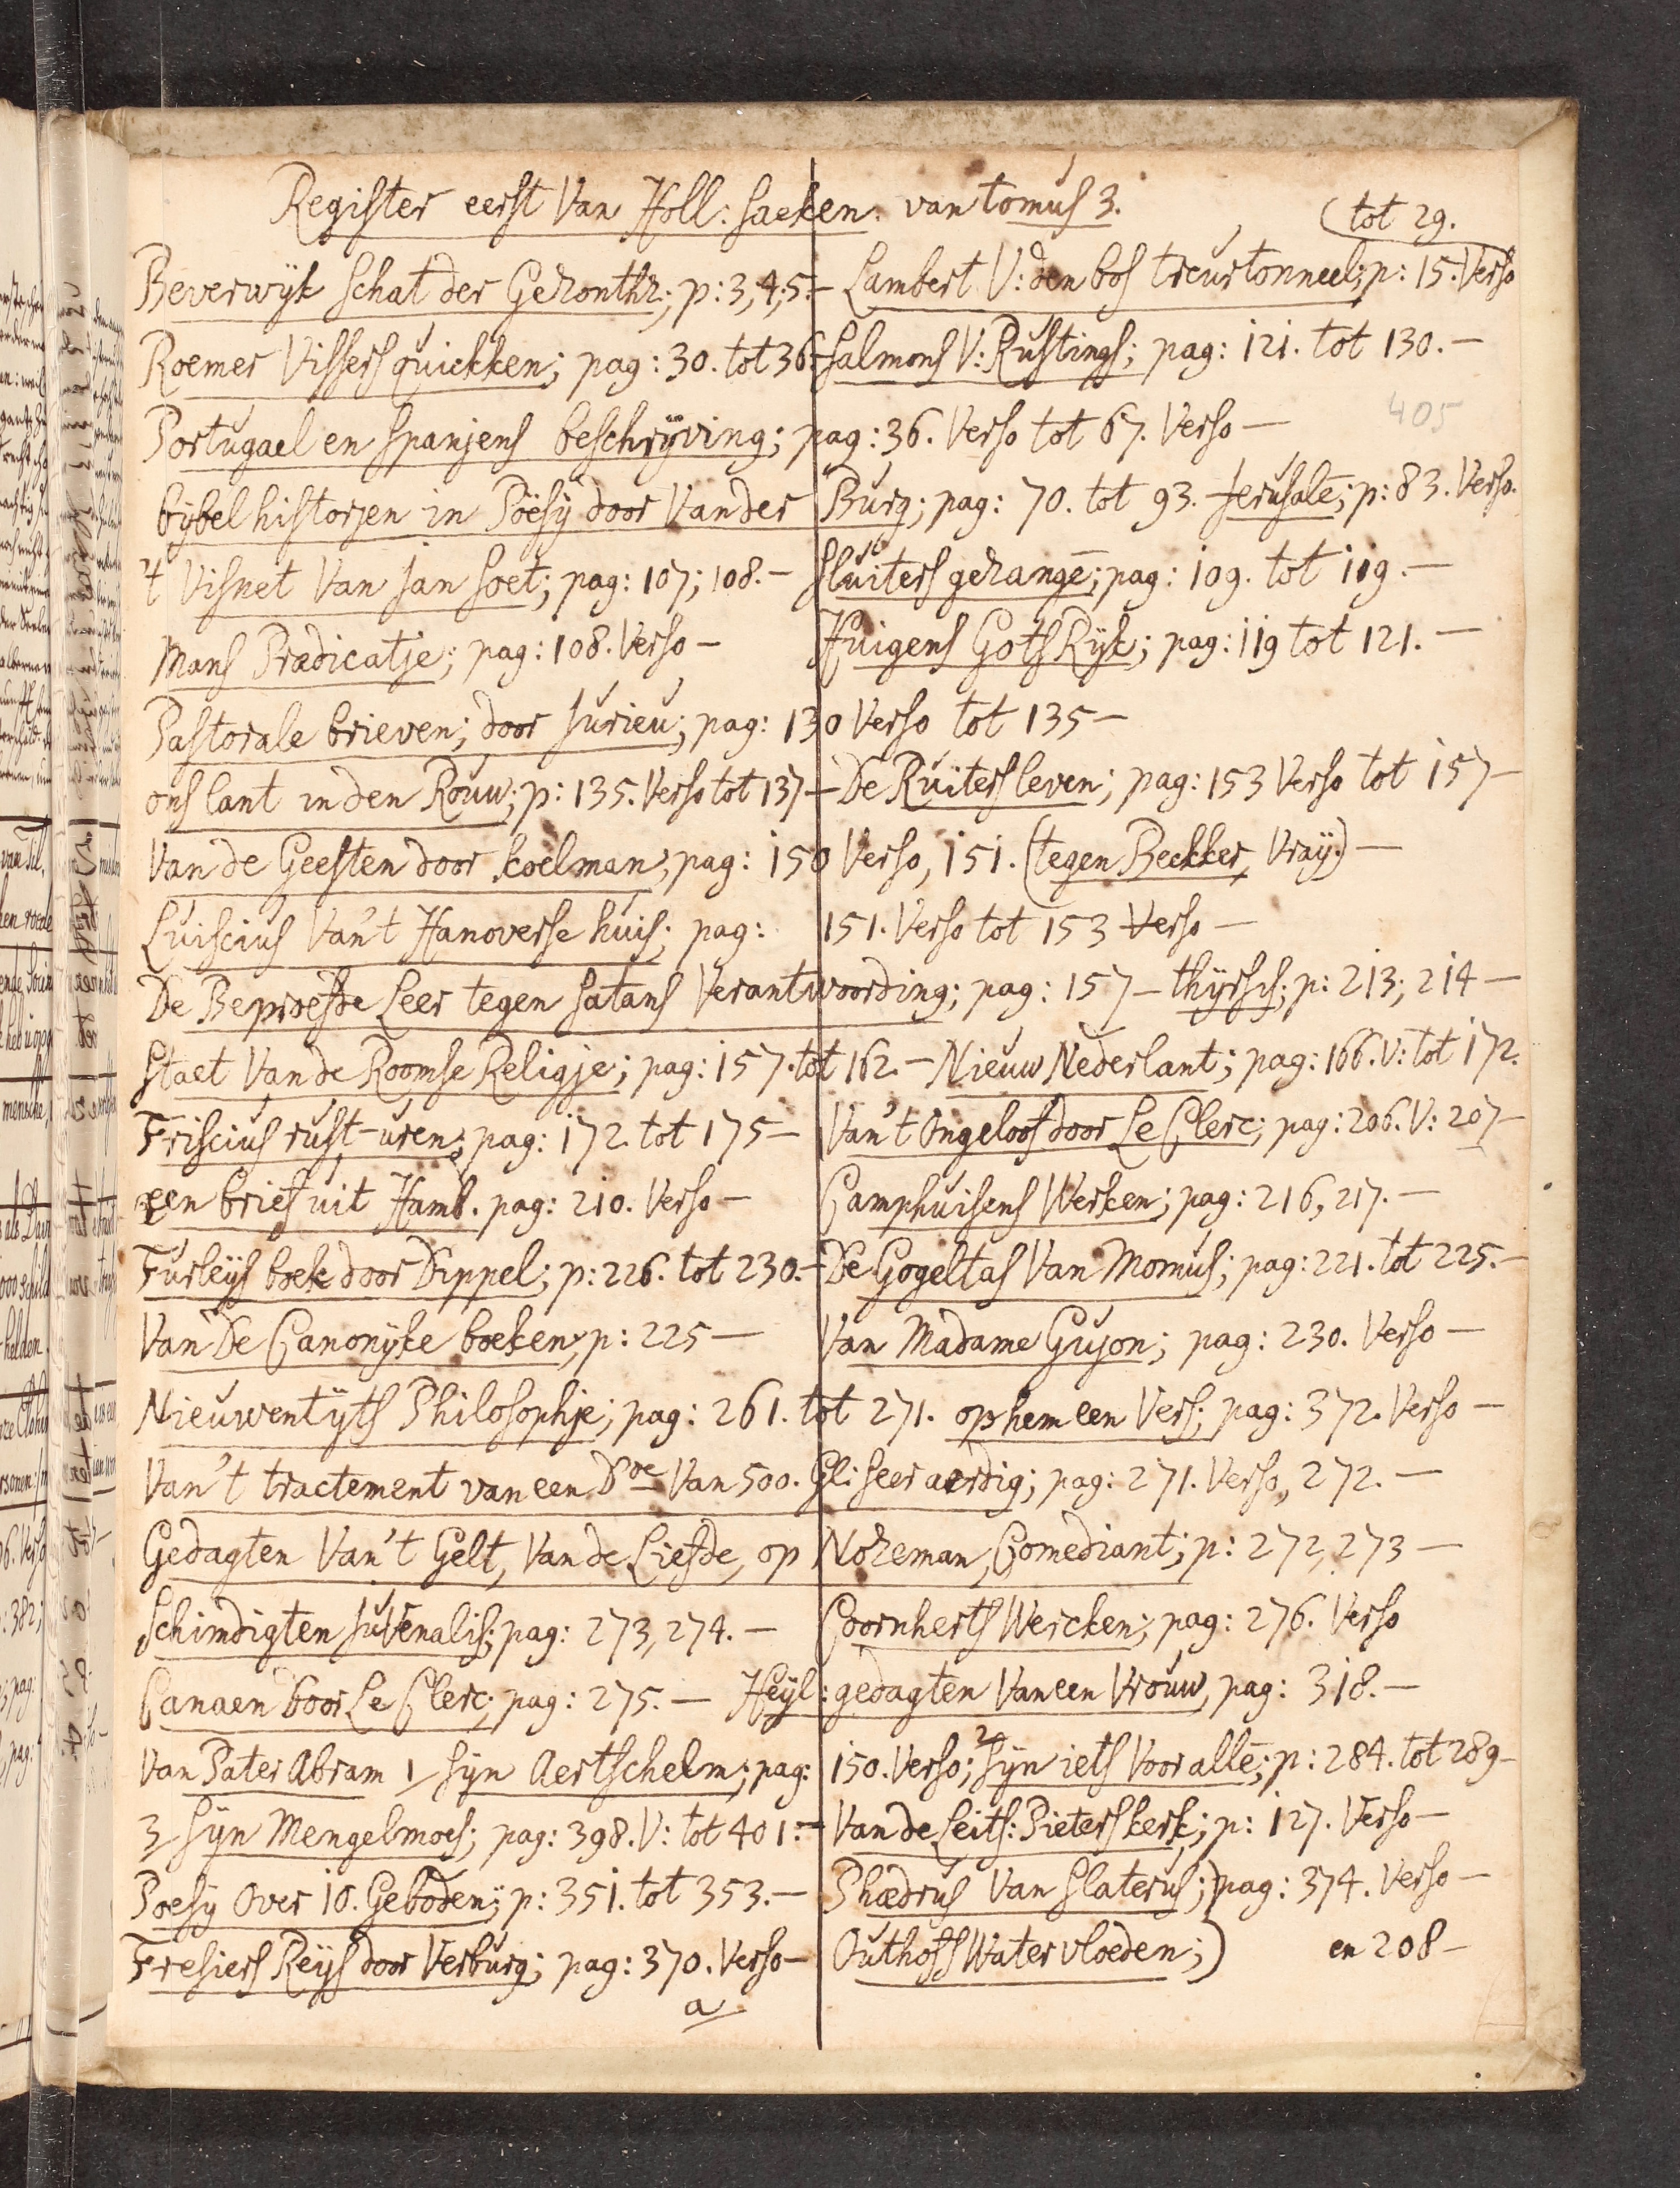 Register eerst Van Holl: saeken. van tomus 3.
(tot 29.
Beverwÿk schat der Gezonthz; p: 3; 4; 5.— Lambert V: den bos treurtonneel; p: 15. Verso
Roemer Vissers quickken; pag: 30. tot 36.— Salmons V: Rustings; pag: 121. tot 130.—
405
Portugael en Spanjens beschrÿving; pag: 36. Verso tot 67. Verso—
bÿbel historjen in Poësÿ door Vander Burg; pag: 70. tot 93. Jerusalē; p: 83. Verso.
't Visnet Van Jan Soet; pag: 107; 108.— Sluiters gezangē; pag: 109. tot 119.—
Mans Prædicatje; pag: 108. Verso— Huigens Gots Rÿk; pag: 119 tot 121.—
Pastorale brieven; door Jurieu; pag: 130 Verso tot 135—
ons lant in den Rouw; p: 135. Verso tot 137— De Ruiters leven; pag: 153 Verso tot 157—
Van de Geesten door koelman; pag: 150 Verso, 151. (tegen Beckker, Vraÿ.)—
Luiscius Van't Hanoverse huis; pag: 151. Verso tot 153 Verso—
De Beproefde Leer tegen Satans Verantwoording; pag: 157— thÿrsis; p: 213; 214—
Staet Van de Roomse Religje; pag: 157. tot 162.— Nieuw Nederlant; pag: 166. V: tot 172.
Friscius rust-uren; pag: 172 tot 175— Van't Ongeloof door Le Clerc; pag: 206. V: 207—
een brief uit Hamb. pag: 210. Verso— Camphuisens Werken; pag: 216, 217.—
Furleÿs boek door Dippel; p: 226. tot 230.— De Gogeltas Van Momus; pag: 221. tot 225.—
Van De Canonÿke boeken; p: 225— Van Madame Gujon; pag: 230. Verso—
Nieuwentÿts Philosophje; pag: 261. tot 271. op hem een Vers; pag: 372. Verso—
Van't tractement van een Doe Van 500. Gl: seer aerdig; pag: 271. Verso, 272.—
Gedagten Van't Gelt, Van de Liefde, op Nozeman, Comediant; p: 272, 273—
Schimdigten Juvenalis; pag: 273, 274.— Coornherts Wercken; pag: 276. Verso
Canaen door Le Clerc; pag: 275.— Heÿl: gedagten Van een Vrouw, pag: 318.—
Van Pater Abram 1 sÿn Aertschelm; pag: 150. Verso; 2 sÿn iets Voor allē; p: 284. tot 289—
3 sÿn Mengelmoes; pag: 398. V: tot 401.— Van de Leits: Pieters kerk; p: 127. Verso—
Poesy Over 10. Geboden; p: 351. tot 353.— Phædrus Van Slaterus;) pag: 374. Verso—
Fresiers Reÿs door Verburg; pag: 370. Verso— Outhoff Water vloeden;) en 208—
a